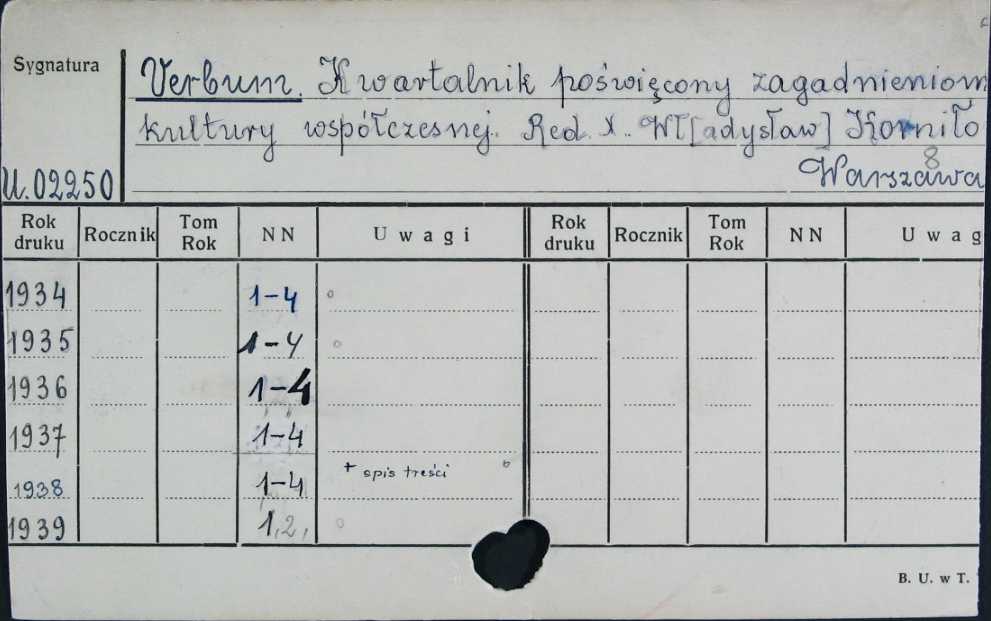 Sygnatura
Verbum. Kwartalnik poświęcony zagadnieniom
kultury współczesnej. Red. X. Wł[adysław] Korniło
U.02250
8
Warszawa
Rok druku Rocznik Tom Rok NN Uwagi Rok druku Rocznik Tom Rok NN Uwag
1934 1-4
1935 1-4
1936 1-4
1937 1-4
+ spis treści
1938 1-4
1939 1,2,
B. U. w T.